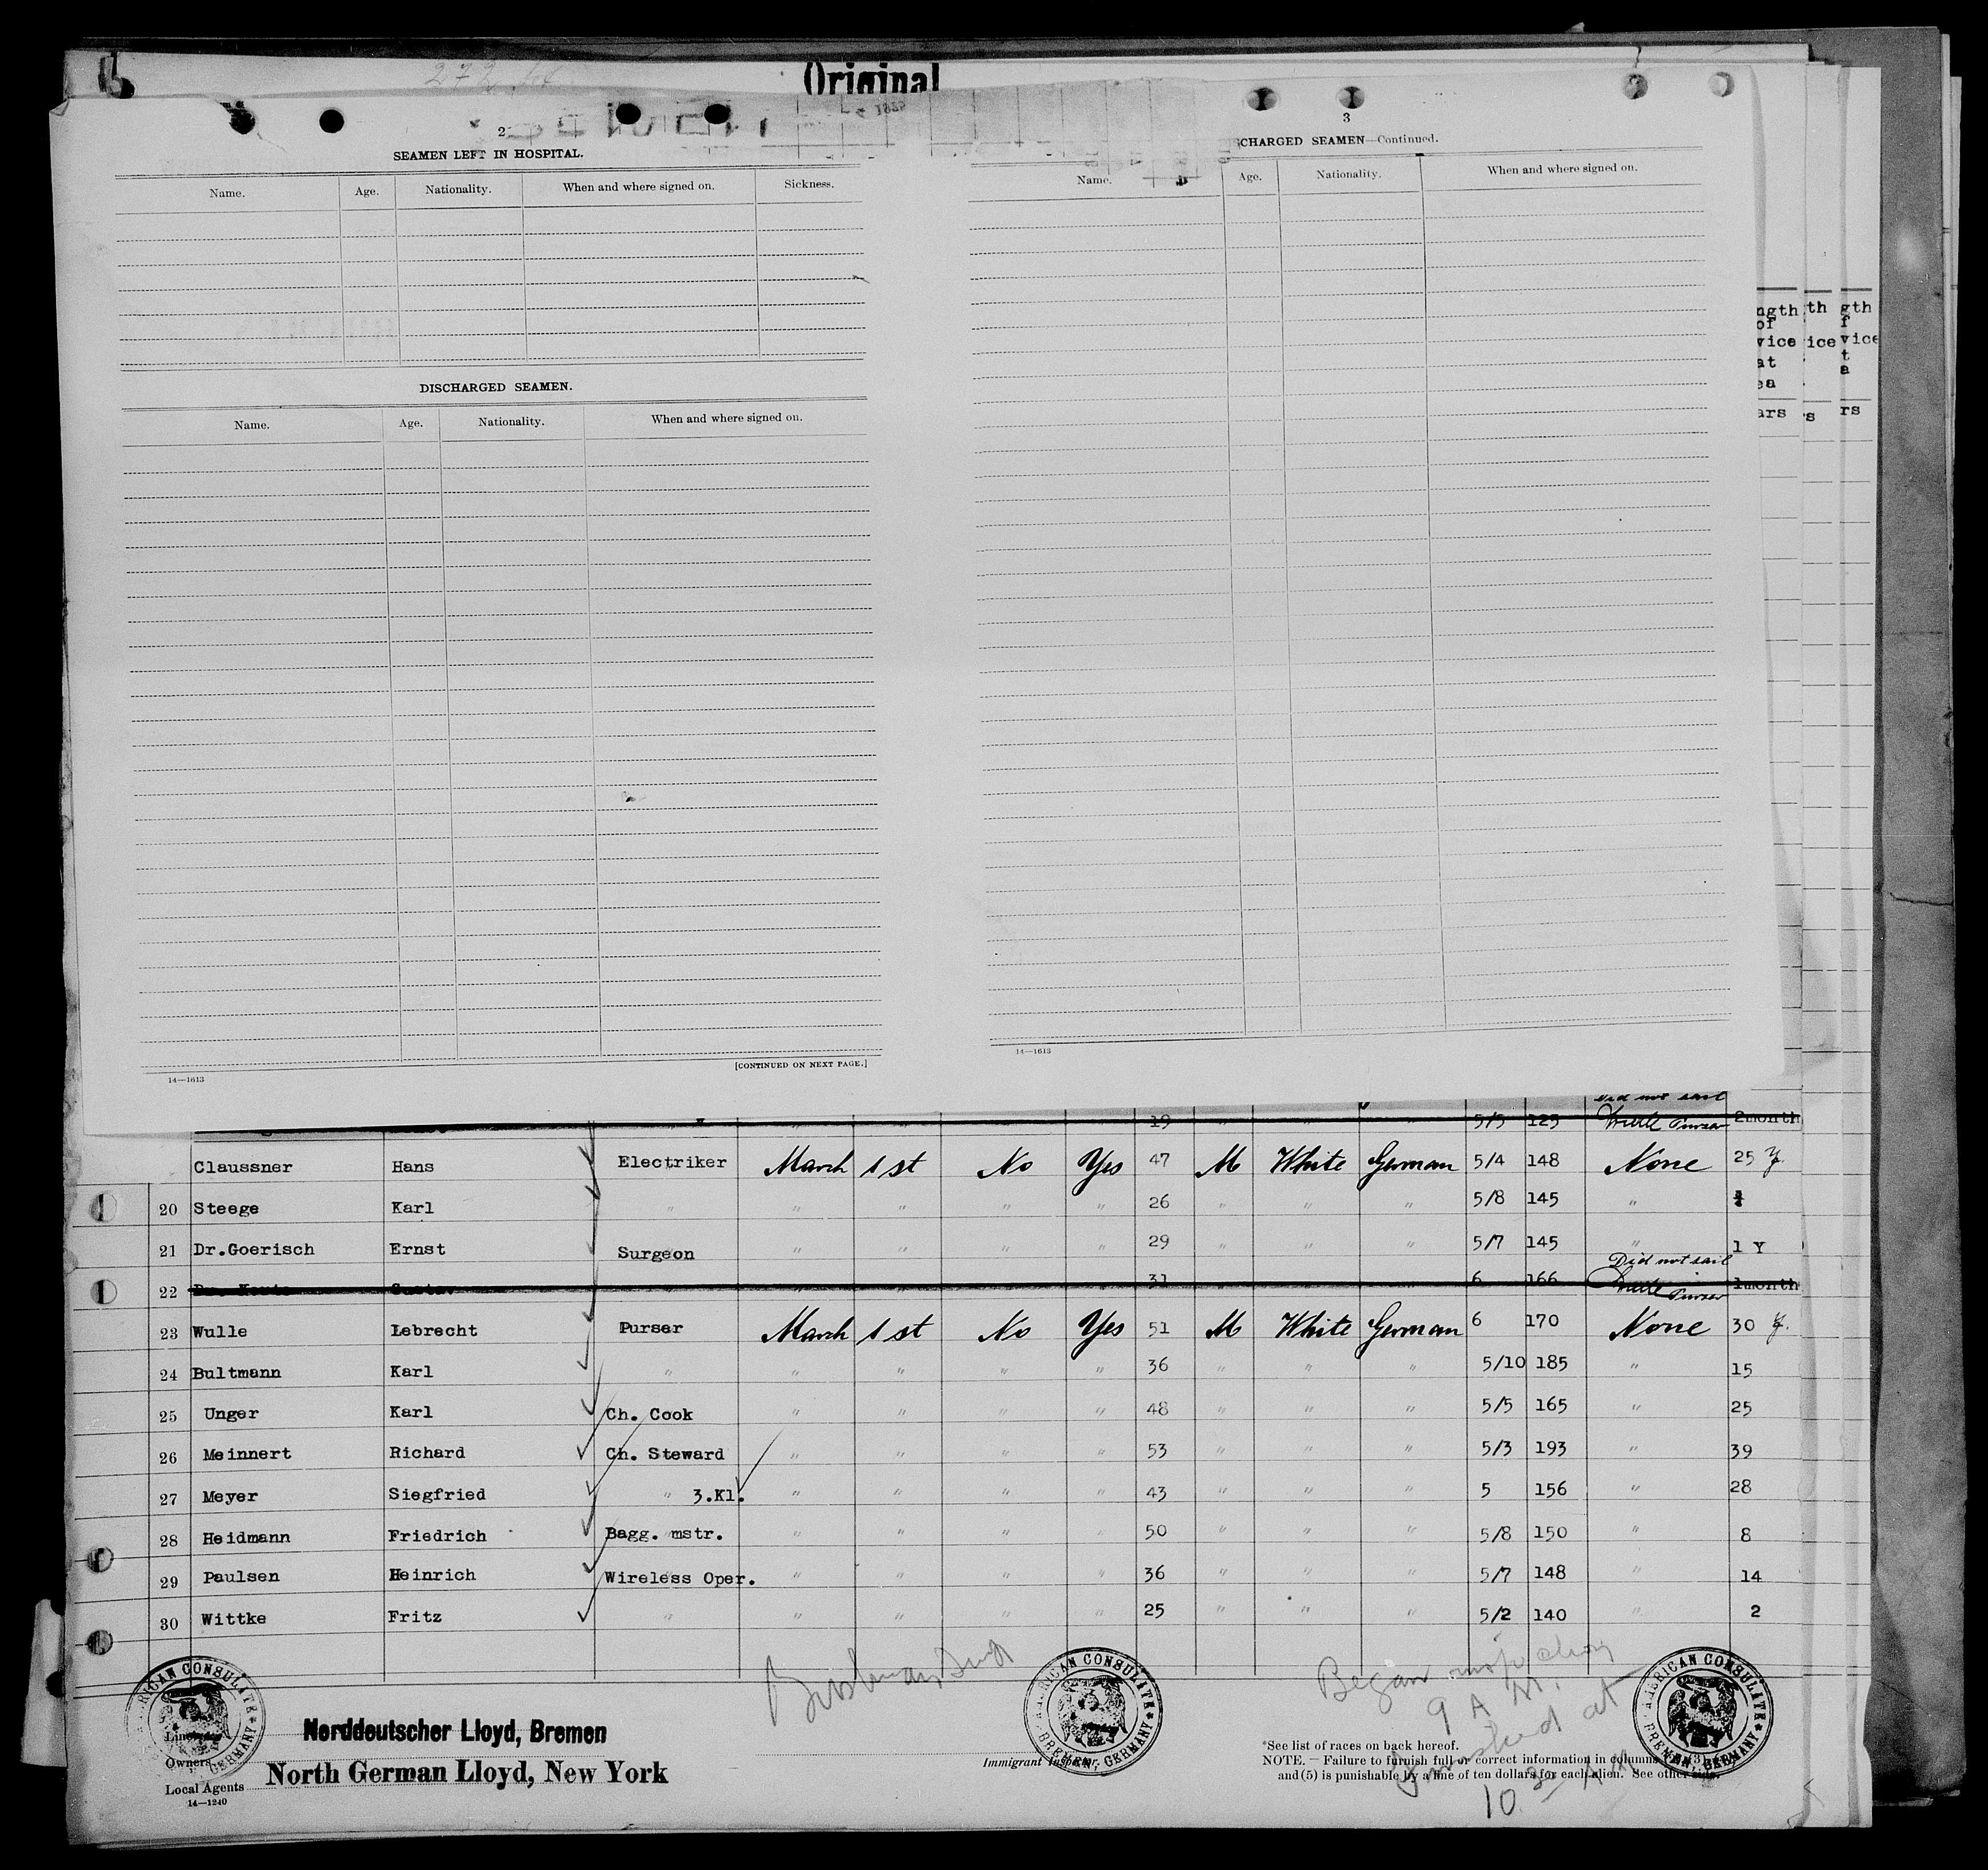 Original
2
SEAMEN LEFT IN HOSPITAL.
Name. Age. Nationality. When and where signed on. Sickness.
DISCHARGED SEAMEN.
Name. Age. Nationality. When and where signed on.
[CONTINUED ON NEXT PAGE.]
14—1613
3
CHARGED SEAMEN—Continued.
Name. Age. Nationality. When and where signed on.
14—1613
ngth th gth
of f
vice ice vice
at t
ea a
ars rs rs
Did not sail
19 " " " 5/5 125 Wulle Purser 2month
Claussner Hans Electriker March 1st No Yes 47 M White German 5/4 148 None 25 Y.
20 Steege Karl " " " " " 26 " " " 5/8 145 "
21 Dr.Goerisch Ernst Surgeon " " " " 29 " " " 5/7 145 " 1 Y
Did not sail
22 Dr. Gustav 31 6 166 Wulle Purser 1month
23 Wulle Lebrecht Purser March 1st No Yes 51 M White German 6 170 None 30 Y.
24 Bultmann Karl " " " " " 36 " " " 5/10 185 " 15
25 Unger Karl Ch. Cook " " " " 48 " " " 5/5 165 " 25
26 Meinnert Richard Ch. Steward " " " " 53 " " " 5/3 193 " 39
27 Meyer Siegfried " 3.Kl. " " " " 43 " " " 5 156 " 28
28 Heidmann Friedrich Bagg. mstr. " " " " 50 " " " 5/8 150 " 8
29 Paulsen Heinrich Wireless Oper. " " " " 36 " " " 5/7 148 " 14
30 Wittke Fritz " " " " " 25 " " " 5/2 140 " 2
AMERICAN CONSULATE BREMEN, GERMANY
AMERICAN CONSULATE BREMEN, GERMANY
AMERICAN CONSULATE BREMEN, GERMANY
Began inspection
9 A M.
Finished at
10 30 A M
Line
Norddeutscher Lloyd, Bremen
Owners
North German Lloyd, New York
Local Agents
14—1240
Immigrant Inspector.
*See list of races on back hereof.
NOTE. — Failure to furnish full or correct information in columns (3)
and (5) is punishable by a fine of ten dollars for each alien. See other side.